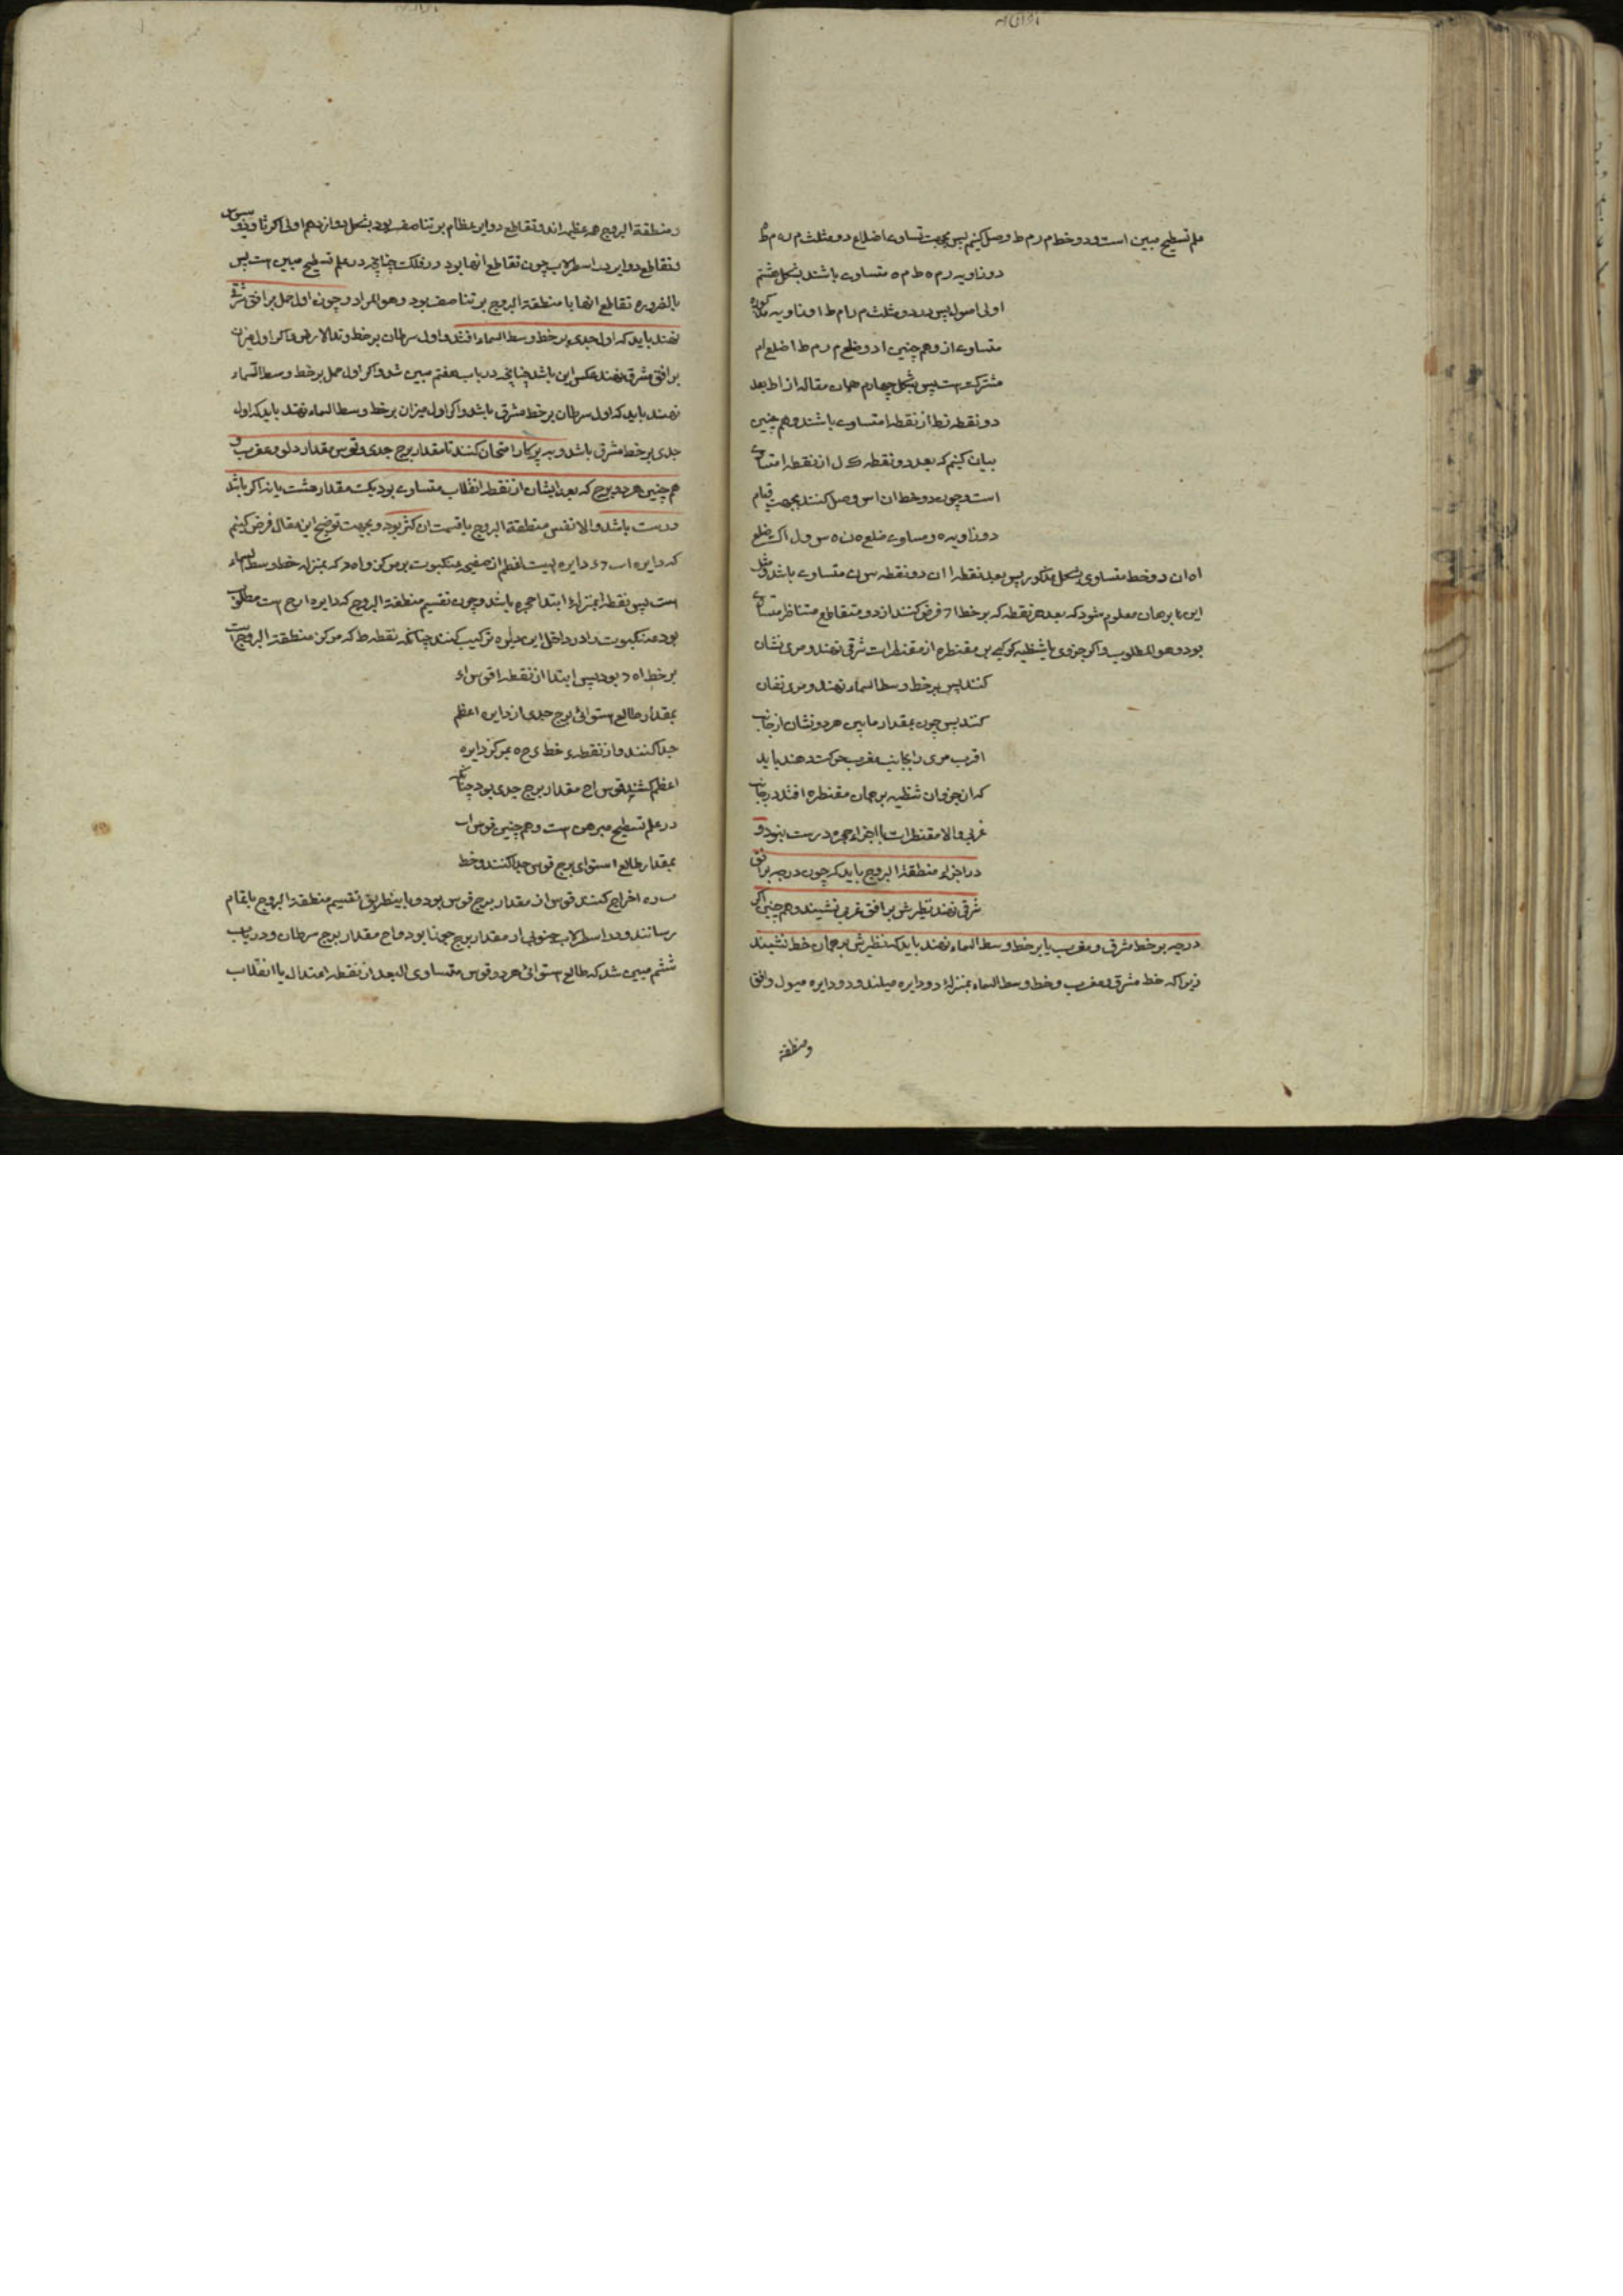 علم تسطیح مبین است و دو خط م ر م ط وصل کنیم پس بجهت تساوی اضلاع دو مثلث م ر ه م ط ه
دو زاویه ر م ه ط م ه متساوی باشند بشکل هشتم
اولی اصول پس در دو مثلث م ر ا م ط ا دو زاویه مذکوره
متساوی اند و هم چنین ا دو ضلع م ر م ط ا ضلع ا م
مشترک است پس بشکل چهارم همان مقاله از ا ط بعد
دو نقطه ر ط از نقطه ا متساوی باشند و هم چنین
بیان کنیم که بعد دو نقطه ک ل از نقطه ا متساوی
است و چون دو خط ا ن ا س وصل کنند بجهت قیام
دو زاویه ه و مساوی ضلع ه ن ه س و ل ا ک ضلع
ا ه ا ن دو خط متساوی بشکل مذکور پس بعد نقطه ا از دو نقطه س ن متساوی باشد و مثل
این برهان معلوم شود که بعد هر نقطه که بر خط ا د فرض کنند از دو متقاطع متناظر متساوی
بود و هو المطلوب و اگر جزوی یا شظیه کوکبی بر مقنطره از مقنطرات شرقی نهند و مری نشان
کنند پس بر خط وسط السماء نهند و مری نشان
کنند پس چون بمقدار ما بین هر دو نشان از جانب
اقرب مری را بجانب مغرب حرکت دهند باید
که ان جزو ان شظیه بر همان مقنطره افتد در جانب
غربی و الا مقنطرات یا اجزاء حجره درست نبود و
در اجزاء منطقة البروج باید که چون درجه بر افق
شرقی نهند نظیرش بر افق غربی نشیند و هم چنین اگر
درجه بر خط مشرق و مغرب یا بر خط وسط السماء نهند باید که نظیرش بر همان خط نشیند
زیرا که خط مشرق و مغرب و خط وسط السماء بمنزلهٔ دو دایره میلند و دو دایره میول و افق
و منطقة
و منطقة البروج همه عظیمه اند و تقاطع دوایر عظام بر تناصف بود بشکل دوازدهم اولی اکر ثاوذوسیوس
و تقاطع دوایر در اسطرلاب چون تقاطع انها بود در فلک چنانچه در علم تسطیح مبین است پس
بالضروره تقاطع انها با منطقة البروج بر تناصف بود و هو المراد و چون اول حمل بر افق شرقی
نهند باید که اول جدی بر خط وسط السماء افتد و اول سرطان بر خط وتد الارض و اگر اول میزان
بر افق مشرق نهند عکس این باشد چنانچه در باب هفتم مبین شد و اگر اول حمل بر خط وسط السماء
نهند باید که اول سرطان بر خط مشرق باشد و اگر اول میزان بر خط وسط السماء نهند باید که اول
جدی بر خط مشرق باشد و به پرکار امتحان کنند تا مقدار برج جدی و قوس مقدار دلو و عقرب و
هم چنین هر دو برج که بعد ایشان از نقطه انقلاب متساوی بود یک مقدار هست یا نه اگر باشد
درست باشد و الا نفس منطقة البروج یا قسمت ان کژ بود و بجهت توضیح این مقال فرض کنیم
که دایره ا ب د ء دایره ایست اعظم از صفیحه عنکبوت بر مرکز ه و ا ه د که بمنزله خط وسط السماء
است پس نقطه ا بمنزلهٔ ابتداء حجره باشد و چون تقسیم منطقة البروج که دایره ا ر ح است مطلوب
بود عنکبوت را در داخل این دایره ترکیب کنند چنانکه نقطه ط که مرکز منطقة البروج است
بر خط ا ه د بود پس ابتدا از نقطه ا قوس ا ء
بمقدار طالع استوائی برج جدی از دایره اعظم
جدا کنند و از نقطه ء خط ی ح ه بمرکز دایره
اعظم کشند قوس ا ح مقدار برج جدی بود چنانکه
در علم تسطیح مبرهن است و هم چنین قوس ا ب
بمقدار طالع استوای برج قوس جدا کنند و خط
ب ر ه اخراج کنند قوس ا ر مقدار برج قوس بود و باینطریق تقسیم منطقة البروج باتمام
رسانند و در اسطرلاب جنوبی ا ر مقدار برج جوزا بود و ا ح مقدار برج سرطان و در باب
ششم مبین شد که طالع استوائی هر دو قوس متساوی البعد از نقطه اعتدال یا انقلاب